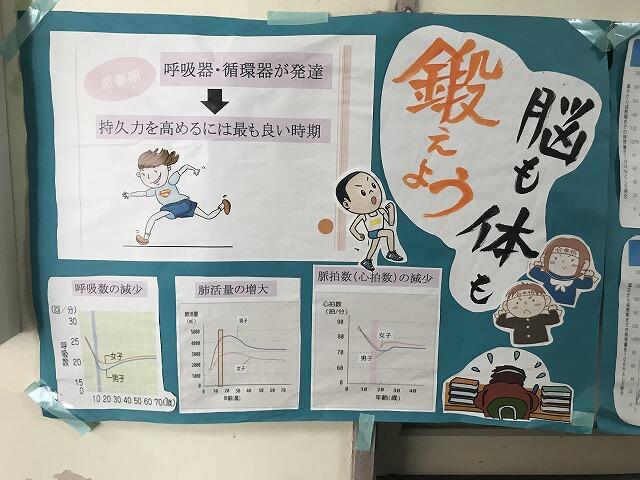 思春期
呼吸器・循環器が発達
持久力を高めるには最も良い時期
脳も体も
鍛えよう
呼吸数の減少
(回/分)
30
25
20
15
0
呼吸数
女子
男子
10 20 30 40 50 60 70(歳)
肺活量の増大
肺活量
(mL)
5000
4000
3000
2000
1000
0
男子
女子
10 20 30 40 50 60 70
年齢(歳)
脈拍数(心拍数)の減少
心拍数
(拍/分)
90
80
70
60
女子
男子
10 20 30 40
年齢(歳)